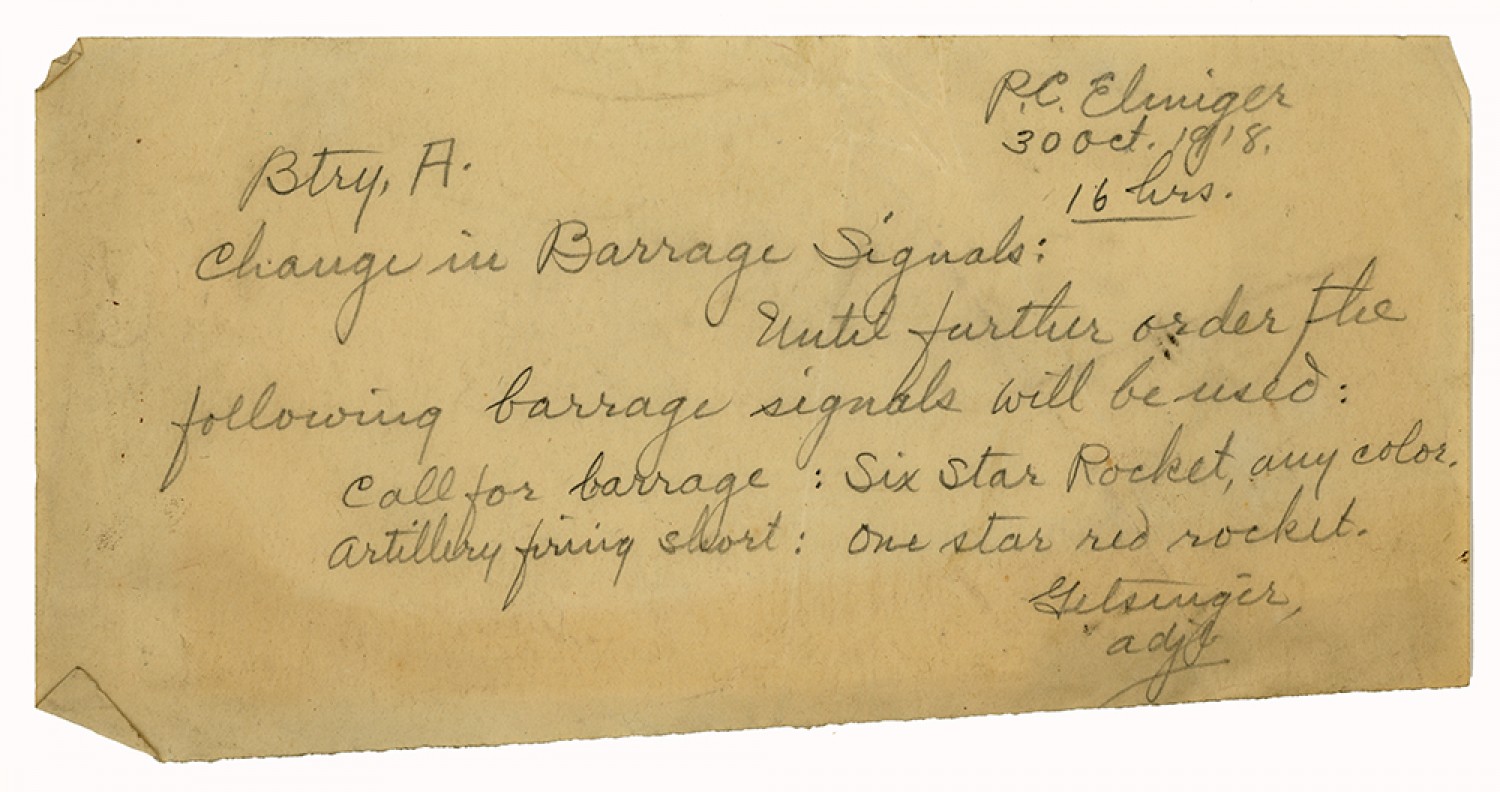 P.C. Elmiger
30 Oct. 1918.
16 hrs.
Btry, A.
Change in Barrage Signals:
Until further order the
following barrage signals will be used:
Call for barrage : Six Star Rocket, any color.
Artillery firing short : One star red rocket.
Getsinger,
adjt